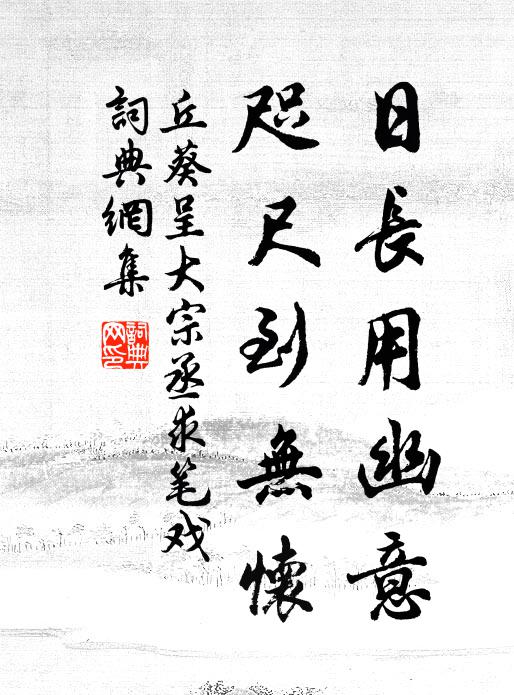 日長用幽意
咫尺到無懷
丘葵呈大宗丞求笔戏
詞典網集
詞典網印